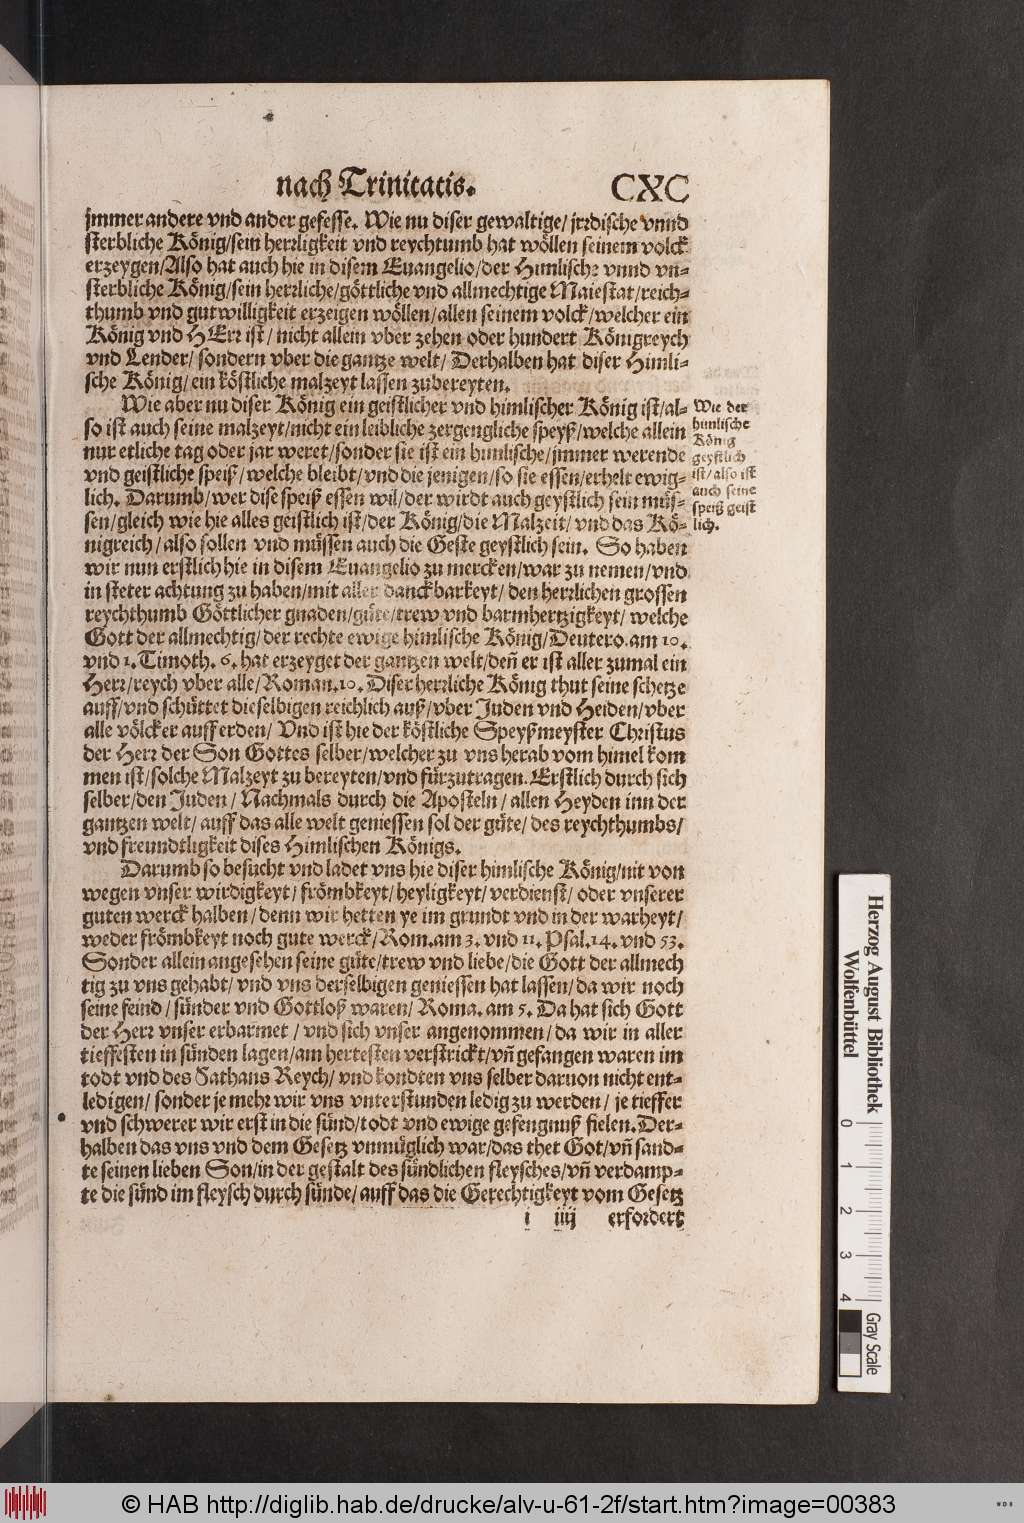 nach Trinitatis. CXC
jmmer andere vnd ander gefesse. Wie nu diser gewaltige/ jrrdische vnnd
sterbliche König/sein herrligkeit vnd reychtumb hat wöllen seinem volck
erzeygen/Also hat auch hie in disem Euangelio/der Himlische vnnd vn-
sterbliche König/sein herrliche/göttliche vnd allmechtige Maiestat/reich-
thumb vnd gutwilligkeit erzeigen wöllen/allen seinem volck/welcher ein
König vnd HErr ist/ nicht allein vber zehen oder hundert Königreych
vnd Lender/ sondern vber die gantze welt/ Derhalben hat diser Himli-
sche König/ein köstliche malzeyt lassen zubereyten.
Wie aber nu diser König ein geistlicher vnd himlischer König ist/al-
so ist auch seine malzeyt/nicht ein leibliche zergengliche speyß/welche allein
nur etliche tag oder jar weret/sonder sie ist ein himlische/jmmer werende
vnd geistliche speiß/welche bleibt/vnd die jenigen/so sie essen/erhelt ewig-
lich. Darumb/wer dise speiß essen wil/der wirdt auch geystlich sein müs-
sen/gleich wie hie alles geistlich ist/der König/die Malzeit/vnd das Kö-
nigreich/also sollen vnd müssen auch die Geste geystlich sein. So haben
wir nun erstlich hie in disem Euangelio zu mercken/war zu nemen/vnd
in steter achtung zu haben/mit aller danckbarkeyt/ den herrlichen grossen
reychthumb Göttlicher gnaden/güte/trew vnd barmhertzigkeyt/ welche
Gott der allmechtig/der rechte ewige himlische König/Deutero.am 10.
vnd 1. Timoth. 6. hat erzeyget der gantzen welt/deñ er ist aller zumal ein
Herr/reych vber alle/Roman.10. Diser herrliche König thut seine schetze
auff/vnd schüttet dieselbigen reichlich auß/vber Juden vnd Heiden/vber
alle völcker auff erden/ Vnd ist hie der köstliche Speyßmeyster Christus
der Herr der Son Gottes selber/welcher zu vns herab vom himel kom
men ist/solche Malzeyt zu bereyten/vnd fürzutragen. Erstlich durch sich
selber/den Juden/ Nachmals durch die Aposteln/ allen Heyden inn der
gantzen welt/ auff das alle welt geniessen sol der güte/des reychthumbs/
vnd freundtligkeit dises Himlischen Königs.
Wie der
himlische
König
geystlich
ist/also ist
auch seine
speiß geist
lich.
Darumb so besucht vnd ladet vns hie diser himlische König/nit von
wegen vnser wirdigkeyt/ frömbkeyt/heyligkeyt/verdienst/ oder vnserer
guten werck halben/denn wir hetten ye im grundt vnd in der warheyt/
weder frömbkeyt noch gute werck/Rom.am 3. vnd 11. Psal.14. vnd 53.
Sonder allein angesehen seine güte/trew vnd liebe/die Gott der allmech
tig zu vns gehabt/vnd vns derselbigen geniessen hat lassen/da wir noch
seine feind/sünder vnd Gottloß waren/ Roma. am 5. Da hat sich Gott
der Herr vnser erbarmet/vnd sich vnser angenommen/da wir in aller
tieffesten in sünden lagen/am hertesten verstrickt/vñ gefangen waren im
todt vnd des Sathans Reych/vnd kondten vns selber daruon nicht ent-
ledigen/ sonder je mehr wir vns vnterstunden ledig zu werden/ je tieffer
vnd schwerer wir erst in die sünd/todt vnd ewige gefengnuß fielen. Der-
halben das vns vnd dem Gesetz vnmüglich war/das thet Got/vñ sand-
te seinen lieben Son/in der gestalt des sündlichen fleysches/vñ verdamp-
te die sünd im fleysch durch sünde/auff das die Gerechtigkeyt vom Gesetz
i iiij erfordert
Herzog August Bibliothek
Wolfenbüttel
0 1 2 3 4
Gray Scale
© HAB http://diglib.hab.de/drucke/alv-u-61-2f/start.htm?image=00383